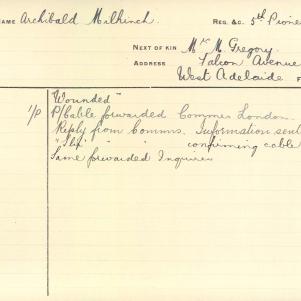 NAME Archibald Milhinch REG. &C. 5th Pione
NEXT OF KIN Mr M. Gregory.
ADDRESS Falcon Avenue
West Adelaide F
"Wounded"
1/P P/Cable forwarded Commer London.
Reply from Comms. Information sent
" " confirming cable
Same forwarded Inquirer